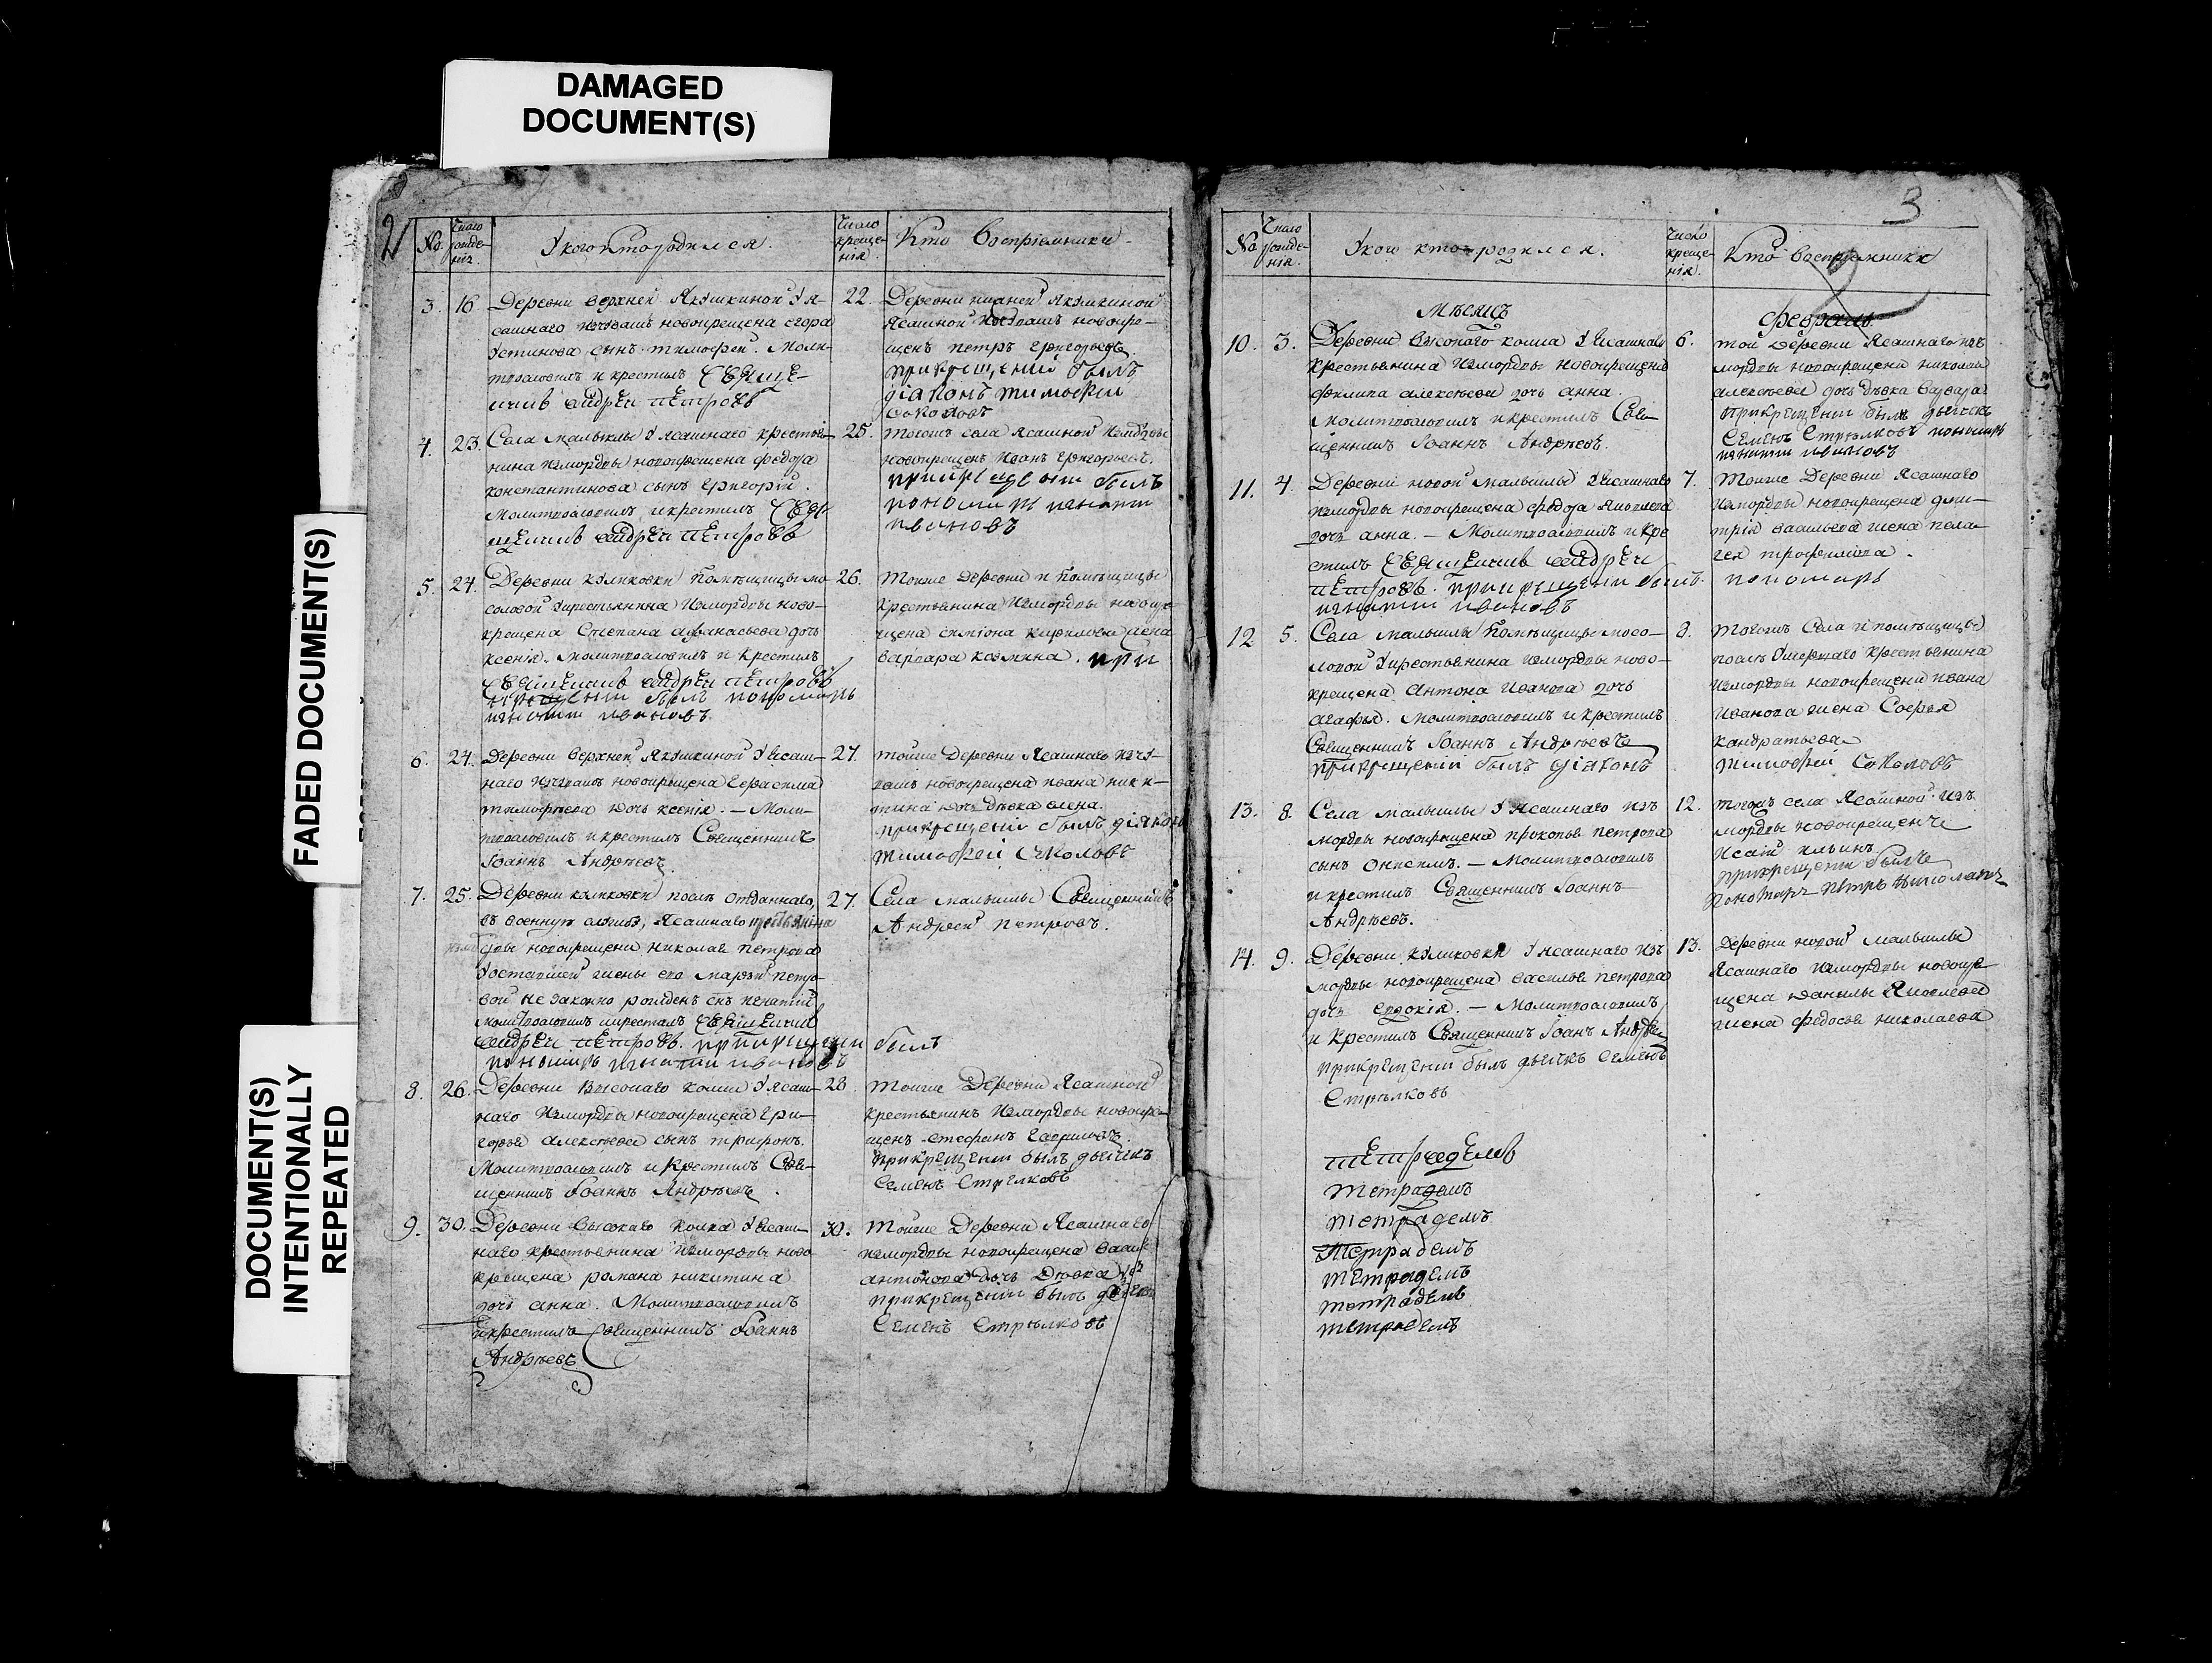 DAMAGED
DOCUMENT(S)
FADED DOCUMENT(S)
DOCUMENT(S)
INTENTIONALLY
REPEATED
2
No.
Число рожде-
нія.
У кого кто родился.
Число
креще-
нія.
Кто восприемники.
3. 16
Деревни верхней Якушкиной у я-
сашнаго новокрещена егора
Устинова сынъ тимофеи. Моли-
твословилъ и крестилъ Свяще-
ниκъ андрей петровъ
22.
Деревни нижней Якушкиной
Ясашной новокре-
щенъ петръ григорьевъ
при крещении былъ
діаконъ тимофеи
соколовъ
4. 23.
Села малыклы у ясашнаго крестья-
нина измордвы новокрещена федора
константинова сынъ григорій.
Молитвословилъ и крестилъ Свя-
щеникъ андрей петровъ
25.
тогожъ села ясашной измордвы
новокрещенъ иванъ григорьевъ.
при крещении былъ
пономарь игнатий
ивановъ
5. 24.
Деревни куликовки помещицы мо-
соловой у крестьянина измордвы ново-
крещена Степана афанасьева дочь
ксенія. молитвословилъ и крестилъ
Священикъ андрей петровъ
крещении былъ пономарь
игнатий ивановъ.
26.
тоиже деревни и помещицы
крестьянина измордвы новокре-
щена симіона жена
варвара козмина. при
6. 24.
Деревни верхней Якушкиной у ясаш-
наго новокрещена Герасима
тимофеева дочь ксенія. — Моли-
твословилъ и крестилъ Священникъ
Іоаннъ Андреевъ
27.
тойже деревни Ясашнаго изчу-
вашъ новокрещена ивана ники-
тина дочь девка елена.
при крещении былъ діаконъ
тимофеи Соколовъ
7. 25.
Деревни куликовки послѣ отданнаго,
въ военную службу, ясашнаго крестьянина
новокрещена николая петрова
У оставшей жены его марфы петро-
вой не законно рожденъ сынъ игнатий
молитвословилъ и крестилъ Священикъ
андрей петровъ. при крещении былъ
пономарь игнатий ивановъ
27.
Села малыклы Священникъ
Андрей петровъ.
8. 26.
Деревни Высокаго колка у ясаш-
наго измордвы новокрещена гри-
горья алексеева сынъ трифонъ.
Молитвословилъ и крестилъ Свя-
щенникъ Іоаннъ Андреевъ.
28.
тоиже Деревни Ясашной
крестьянинъ измордвы новокре-
щенъ стефанъ гавриловъ.
при крещении былъ дьячекъ
Семенъ Стрелковъ
9. 30.
Деревни Высокаго колка у ясаш-
наго крестьянина измордвы ново-
крещена романа никитина
дочь анна. Молитвословилъ
и крестилъ Священникъ Іоаннъ
Андреевъ
30.
Тоиже Деревни Ясашнаго
измордвы новокрещена
антонова дочь Девка
при крещении былъ дьячекъ
Семенъ Стрѣлковъ
3
No
Число
рожде-
нія.
У кого кто родился.
Число
креще-
нія.
Кто восприемники
мѣсяцъ
февраль.
10. 3.
Деревни высокаго колка у ясашнаго
крестьянина измордвы новокрещена
филипа алексеева дочь анна.
молитвословилъ и крестилъ Свя-
щенникъ Іоаннъ Андреевъ.
6.
той Деревни Ясашнаго изъ
мордвы новокрещена николая
алексеева дочь девка варвара
при крещении былъ дьячекъ
Семенъ Стрелковъ пономарь
игнатии ивановъ
11. 4.
Деревни новой малыклы у ясашнаго
измордвы новокрещена федора Яковлева
дочь анна. — Молитвословилъ и кре
стилъ Священикъ андрей
петровъ. при крещении былъ. пономарь
игнатии ивановъ
7.
Тоиже Деревни Ясашнаго
измордвы новокрещена дми-
трія васильева жена пела-
гея трофимова.
12 5.
Села малыклы помещицы мосо-
ловой у крестьянина измордвы ново-
крещена антона иванова дочь
агафья. молитвословилъ и крестилъ
Священникъ Іоаннъ Андреевъ
при крещении былъ діаконъ
8.
тогожъ Села и помещицы
послѣ умершаго крестьянина
измордвы новокрещена ивана
иванова жена Софья
кандратьева
тимофеи Соколовъ
13. 8.
Села малыклы у ясашнаго изъ
мордвы новокрещена прокопья петрова
сынъ онисимъ. — Молитвословилъ
и крестилъ Священникъ Іоаннъ
Андреевъ.
12.
тогожъ села Ясашной изъ
мордвы новокрещенъ
Исай ильинъ
при крещении былъ
пономарь петръ николаевъ
14. 9.
Деревни куликовки у ясашнаго изъ
мордвы новокрещена василья петрова
дочь евдокія. — Молитвословилъ
и крестилъ Священникъ Іоаннъ Андреевъ
при крещении былъ дьячекъ Семенъ
Стрѣлковъ
13.
Деревни новой малыклы
Ясашнаго измордвы новокре
щена данилы Яковлева
жена федосья николаева